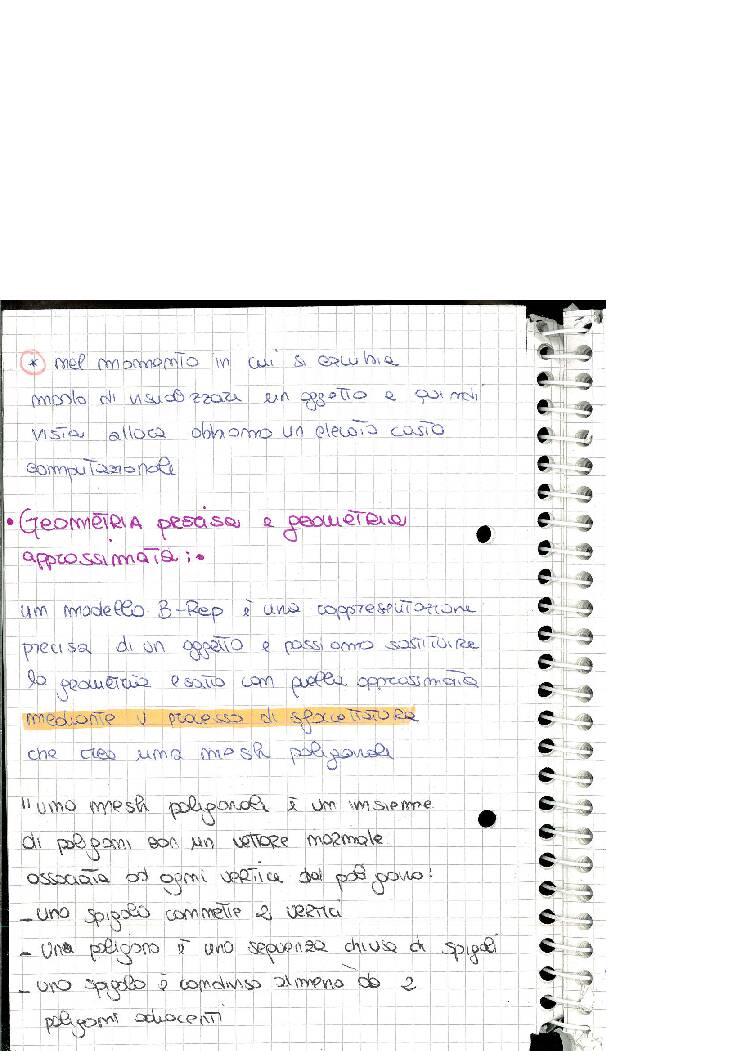 * nel momento in cui si cambia
modo di visualizzare un oggetto e quindi
vista allora abbiamo un elevato costo
computazionale
• GEOMETRIA precisa e geometria
approssimata:•
un modello B-Rep è una rappresentazione
precisa di un oggetto e possiamo sostituire
la geometria esatta con quella approssimata
mediante il processo di sfaccettatura
che crea una mesh poligonale
"una mesh poligonale è un insieme
di poligoni con un vettore normale
associato ad ogni vertice del poligono:
- uno spigolo connette 2 vertici
- una poligono è una sequenza chiusa di spigoli
- uno spigolo è condiviso almeno da 2
poligoni adiacenti